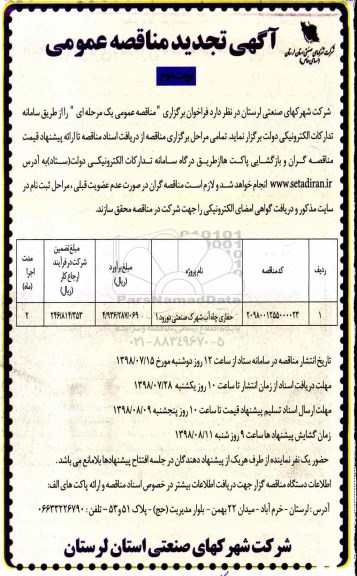 آگهی تجدید مناقصه عمومی
شرکت شهرکهای صنعتی استان لرستان
(سهامی خاص)
نوبت دوم
شرکت شهرکهای صنعتی لرستان در نظر دارد فراخوان برگزاری "مناقصه عمومی یک مرحله ای" را از طریق سامانه
تدارکات الکترونیکی دولت برگزار نماید. تمامی مراحل برگزاری مناقصه از دریافت اسناد مناقصه تا ارائه پیشنهاد قیمت
مناقصه گران و بازگشایی پاکت ها از طریق درگاه سامانه تدارکات الکترونیکی دولت (ستاد) به آدرس
www.setadiran.ir انجام خواهد شد و لازم است مناقصه گران در صورت عدم عضویت قبلی ، مراحل ثبت نام در
سایت مذکور و دریافت گواهی امضای الکترونیکی را جهت شرکت در مناقصه محقق سازند.
ردیف کد مناقصه نام پروژه مبلغ برآورد (ریال) مبلغ تضمین شرکت در فرآیند ارجاع کار (ریال) مدت اجرا (ماه)
۱ ۲۰۹۸۰۰۱۲۵۵۰۰۰۰۲۳ حفاری چاه آب شهرک صنعتی دورود ۱ ۴/۹۳۶/۲۸۷/۰۶۹ ۲۴۶/۸۱۴/۳۵۳ ۲
ParsNamadData
۰۲۱-۸۸۳۴۹۶۷۰-۵
تاریخ انتشار مناقصه در سامانه ستاد از ساعت ۱۲ روز دوشنبه مورخ ۱۳۹۸/۰۷/۱۵
مهلت دریافت اسناد از زمان انتشار تا ساعت ۱۰ روز یکشنبه ۱۳۹۸/۰۷/۲۸
مهلت ارسال اسناد تسلیم پیشنهاد قیمت تا ساعت ۱۰ روز پنجشنبه ۱۳۹۸/۰۸/۰۹
زمان گشایش پیشنهاد ها ساعت ۹ روز شنبه ۱۳۹۸/۰۸/۱۱
حضور یک نفر نماینده از طرف هر یک از پیشنهاد دهندگان در جلسه افتتاح پیشنهادها بلامانع می باشد.
اطلاعات دستگاه مناقصه گزار جهت دریافت اطلاعات بیشتر در خصوص اسناد مناقصه و ارائه پاکت های الف:
آدرس : لرستان - خرم آباد - میدان ۲۲ بهمن - بلوار مدیریت (حج) - پلاک ۵۱ و ۵۳ - تلفن : ۰۶۶۳۳۲۲۶۷۹۰
شرکت شهرکهای صنعتی استان لرستان